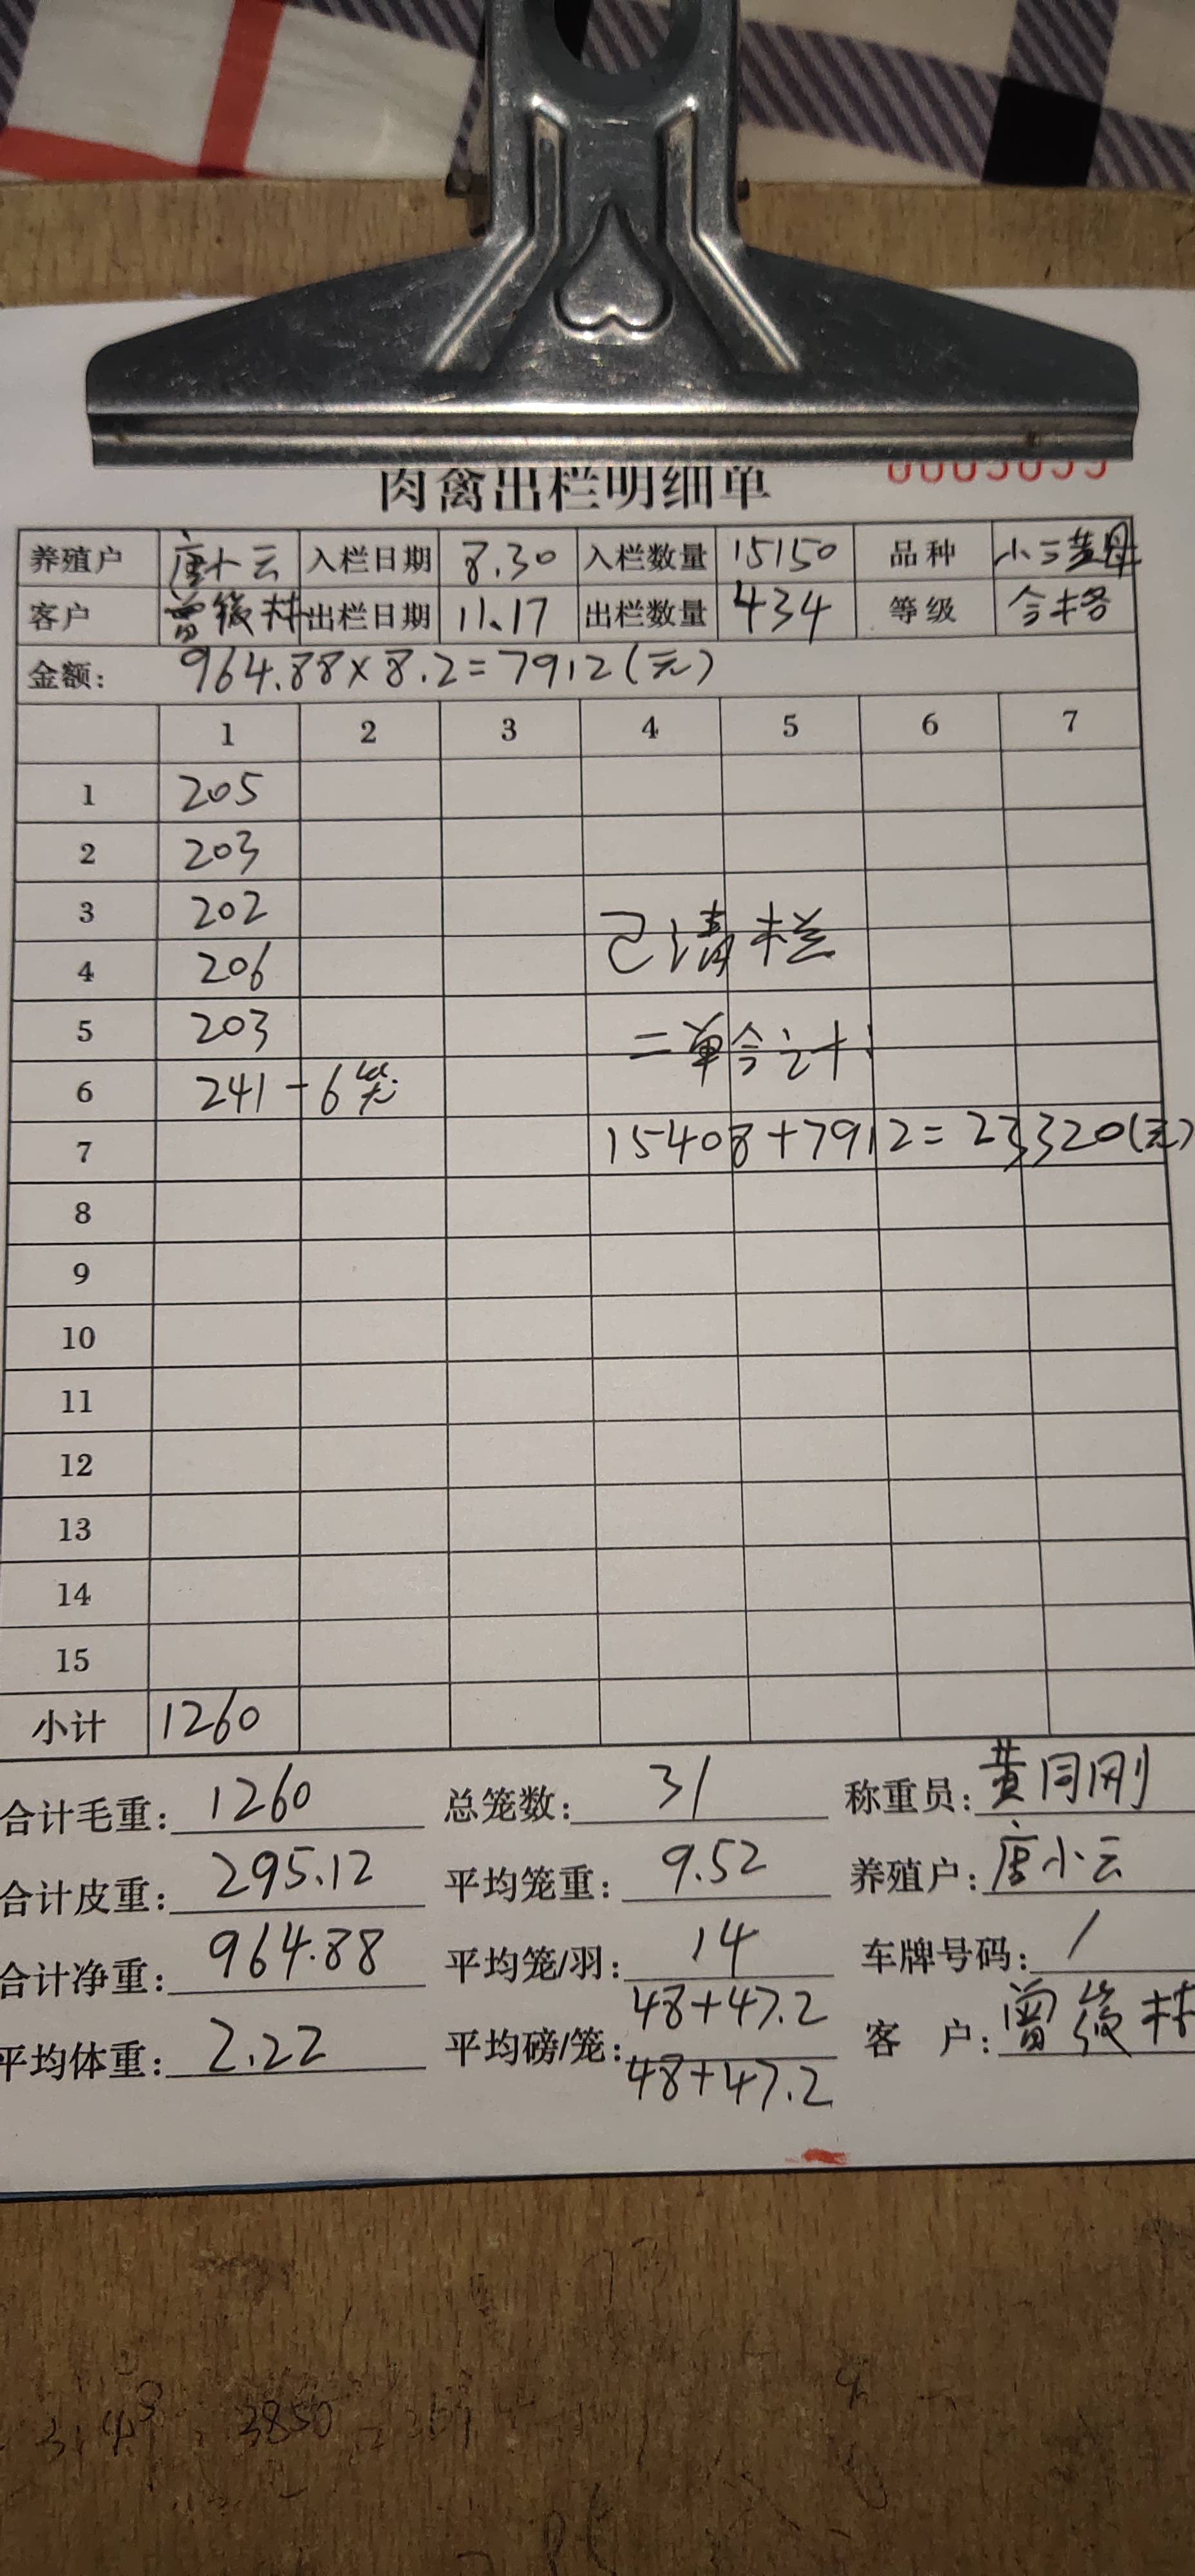 肉禽出栏明细单
养殖户 唐小云 入栏日期 8.30 入栏数量 15150 品种 小三黄母
客户 曾筱林 出栏日期 11.17 出栏数量 434 等级 合格
金额: 964.88×8.2=7912(元)
1 2 3 4 5 6 7
1 205
2 203
3 202
4 206 已清栏
5 203 二单合计:
6 241-6笼
7 15408+7912=23320(元)
8
9
10
11
12
13
14
15
小计 1260
合计毛重: 1260 总笼数: 31 称重员: 黄同刚
合计皮重: 295.12 平均笼重: 9.52 养殖户: 唐小云
合计净重: 964.88 平均笼/羽: 14 车牌号码: /
48+47.2
平均体重: 2.22 平均磅/笼: 客 户: 曾筱林
48+47.2
3850